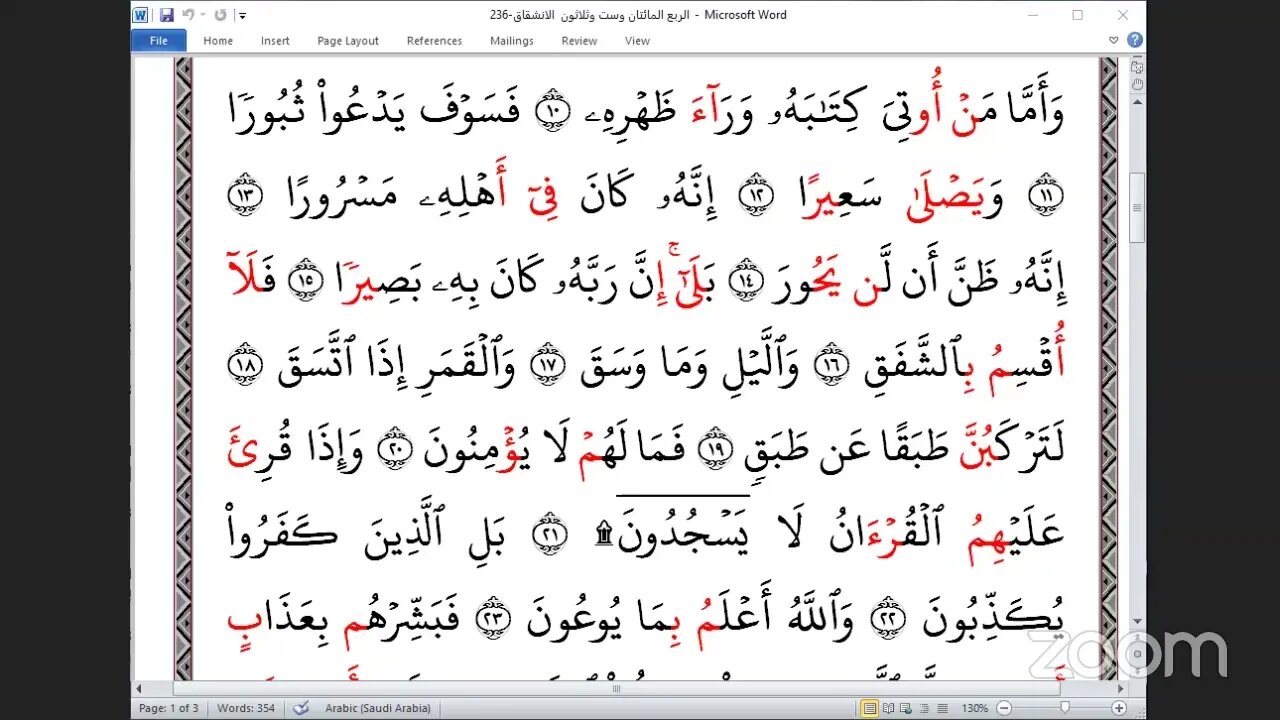 الربع المائتان وست وثلاثون الانشقاق-236 - Microsoft Word
File Home Insert Page Layout References Mailings Review View
وَأَمَّا مَنۡ أُوتِيَ كِتَٰبَهُۥ وَرَآءَ ظَهۡرِهِۦ ١٠ فَسَوۡفَ يَدۡعُواْ ثُبُورٗا
١١ وَيَصۡلَىٰ سَعِيرًا ١٢ إِنَّهُۥ كَانَ فِيٓ أَهۡلِهِۦ مَسۡرُورًا ١٣
إِنَّهُۥ ظَنَّ أَن لَّن يَحُورَ ١٤ بَلَىٰٓۚ إِنَّ رَبَّهُۥ كَانَ بِهِۦ بَصِيرٗا ١٥ فَلَآ
أُقۡسِمُ بِٱلشَّفَقِ ١٦ وَٱلَّيۡلِ وَمَا وَسَقَ ١٧ وَٱلۡقَمَرِ إِذَا ٱتَّسَقَ ١٨
لَتَرۡكَبُنَّ طَبَقًا عَن طَبَقٖ ١٩ فَمَا لَهُمۡ لَا يُؤۡمِنُونَ ٢٠ وَإِذَا قُرِئَ
عَلَيۡهِمُ ٱلۡقُرۡءَانُ لَا يَسۡجُدُونَ۩ ٢١ بَلِ ٱلَّذِينَ كَفَرُواْ
يُكَذِّبُونَ ٢٢ وَٱللَّهُ أَعۡلَمُ بِمَا يُوعُونَ ٢٣ فَبَشِّرۡهُم بِعَذَابٍ
zoom
Page: 1 of 3 Words: 354 Arabic (Saudi Arabia) 130%